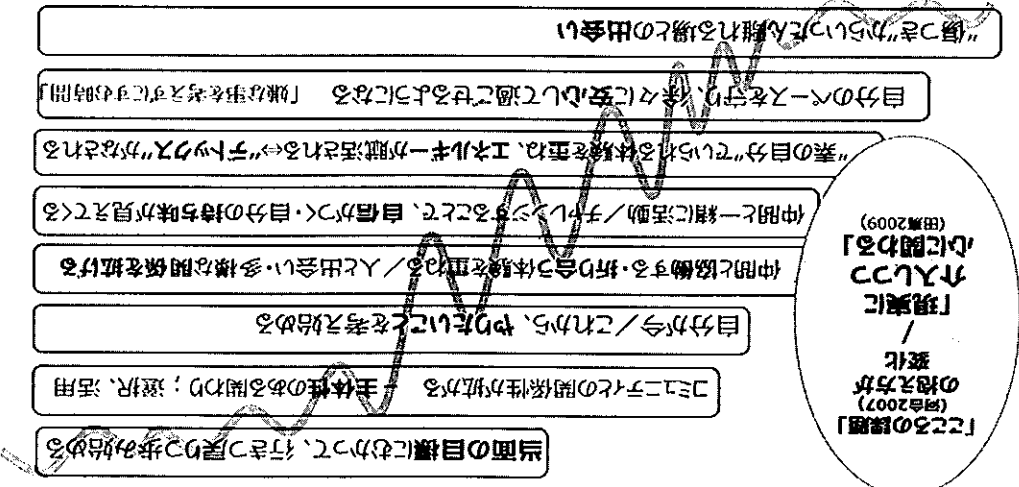 当面の目標にむかって、行きつ戻りつ歩み始める
コミュニティとの関係性が拡がる → 主体性のある関わり；選択、活用
自分が今／これから、やりたいことを考え始める
仲間と協働する・折り合う体験を重ねる／人と出会い・多様な関係を拡げる
仲間と一緒に活動／チャレンジすることで、自信がつく・自分の持ち味が見えてくる
"素の自分"でいられる体験を重ね、エネルギーが賦活される⇔"デトックス"がなされる
自分のペースを守り、徐々に安心して過ごせるようになる 「嫌な事を考えずにすむ時間」
"傷つき"からいったん離れる場との出会い
「こころの課題」
(河合2007)
の抱え方が
変化
／
「現実に
介入しつつ
心に関わる」
(田嶌2009)